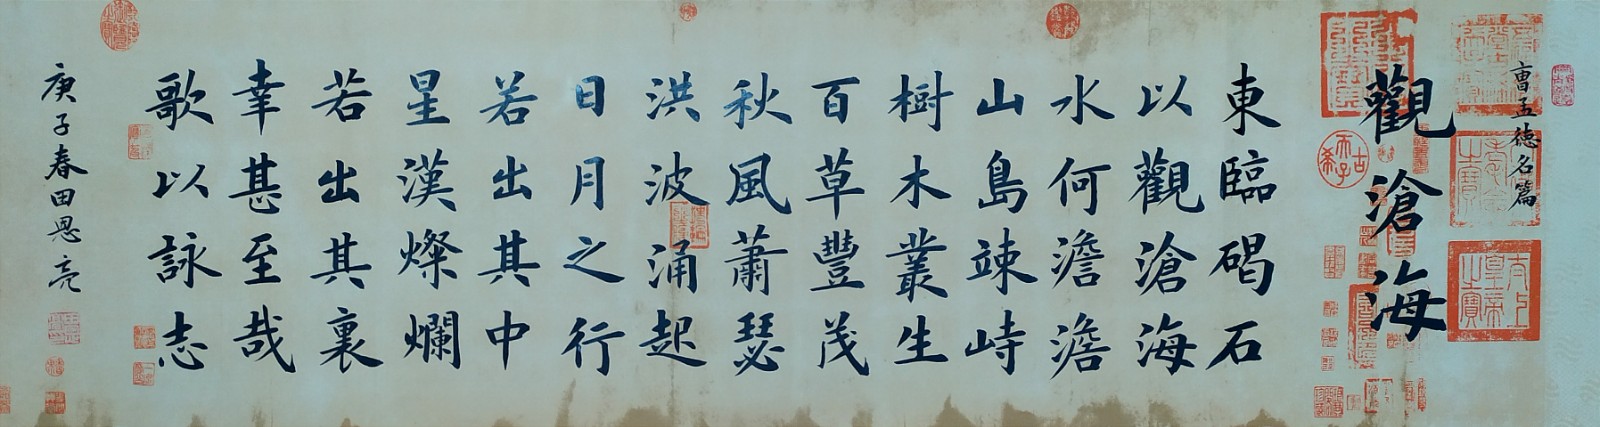 曹孟德名篇
觀滄海
東臨碣石
以觀滄海
水何澹澹
山島竦峙
樹木叢生
百草豐茂
秋風蕭瑟
洪波涌起
日月之行
若出其中
星漢燦爛
若出其裏
幸甚至哉
歌以詠志
庚子春田恩亮